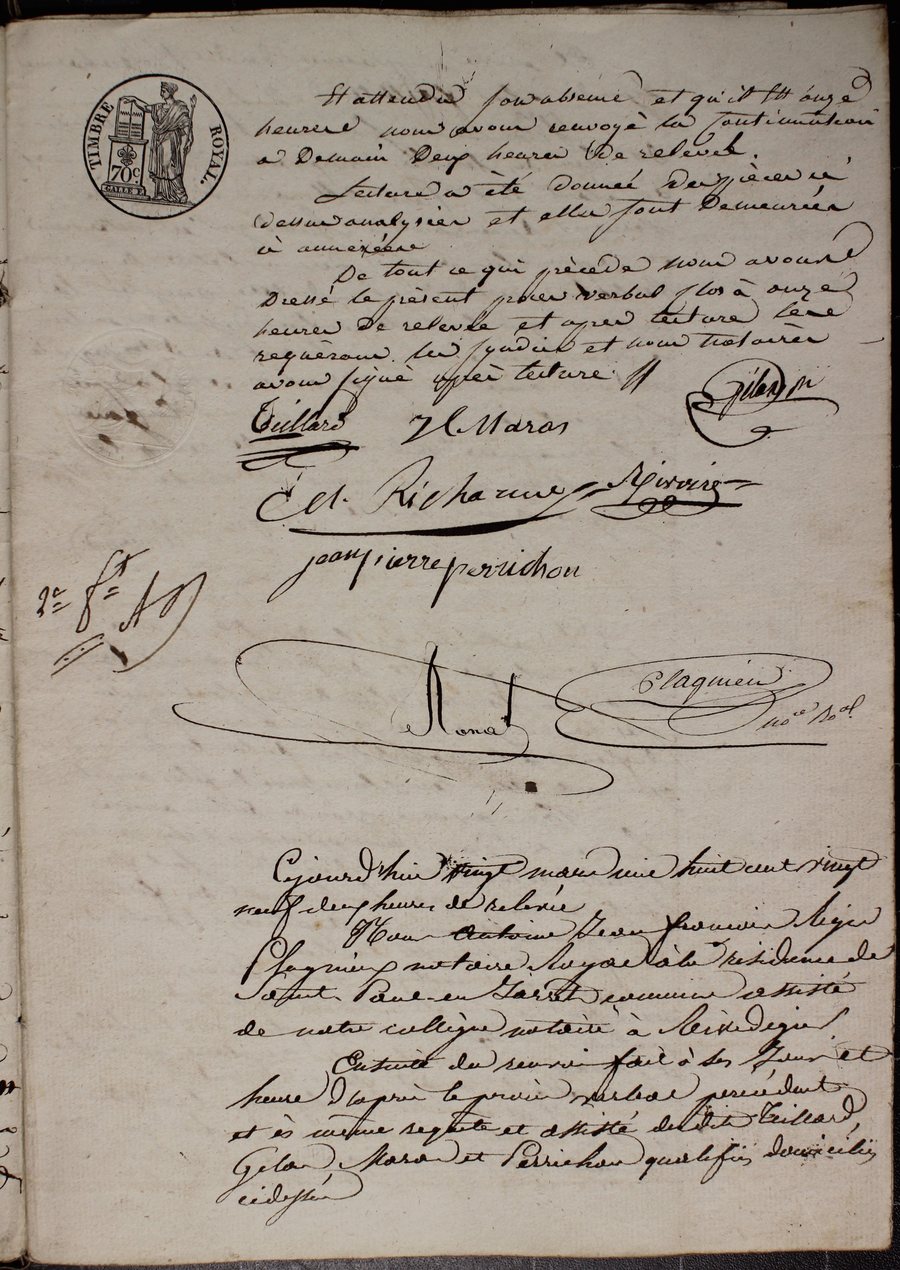 TIMBRE ROYAL.
70 C.
Et attendu son absence et qu'il est onze
heures nous avons renvoyé la continuation
a Demain Deux heures De relevée.
Lecture a été donnée des pièces ci
dessus analysées et elles sont Demeurées
ci annexées
De tout ce qui précède nous avons
Dressé le présent procès verbal clos à onze
heures De relevée et après lecture les
requérans les syndics et nous notaires
avons signé après lecture
Teillard Maras Gilon
Richarme Rivoire
jean pierre perrichon
2e
Plagnieu
nore Roal
Cejourd'hui vingt mars mil huit cent vingt
neuf deux heures de relevée
Nous Antoine Jean françois Régis
Plagnieu notaire Royal à la résidence de
Saint Paul en Jarrêt commune assisté
de notre collègue notaire à Rivedegier
Ensuite du renvoi fait à ses Jour et
heure D'après le procès verbal précédent
et ès même requête et assisté desdits Teillard,
Gilon Maras et Perrichon qualifiés domiciliés
cidessus